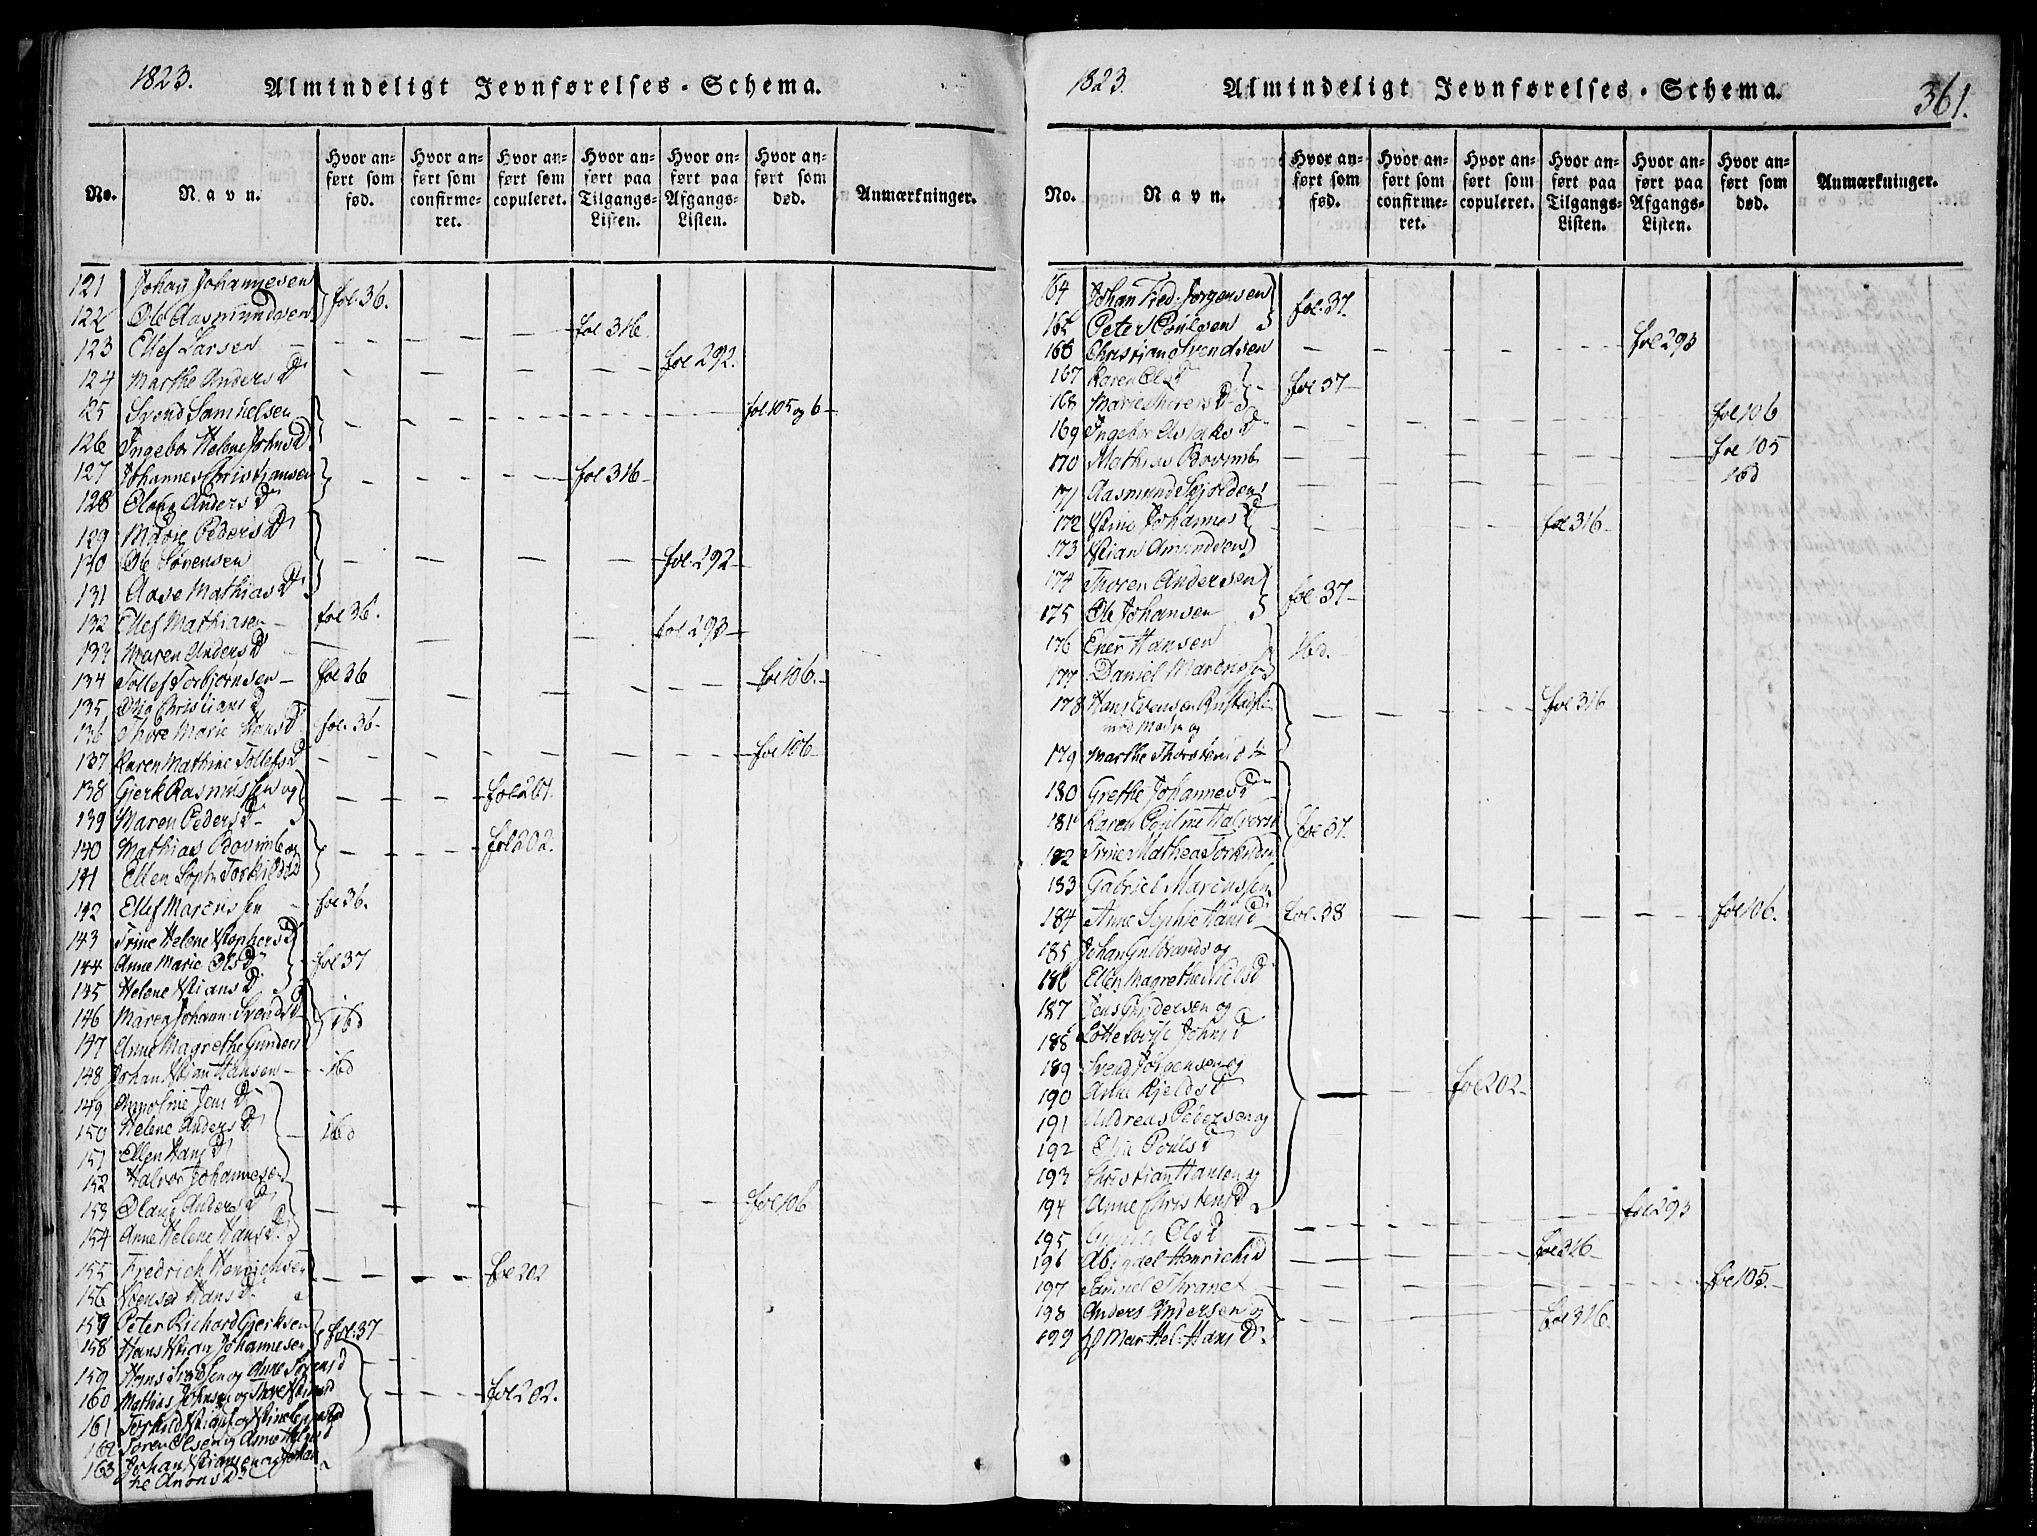 1823.
Almindeligt Jevnførelses-Schema.
No.
Navn.
Hvor anført som fød.
Hvor anført som confirmeret.
Hvor anført som copuleret.
Hvor anført paa Tilgangs-Listen.
Hvor anført paa Afgangs-Listen.
Hvor anført som død.
Anmærkninger.
121 Johan Johannesen
122 Ole Aasmundsen } fol. 36.
123 Ellef Larsen — fol 316.
124 Marthe Anders D. — fol 292.
125 Svend Samuelsen
126 Ingebor Helene Johns D. } fol 105 og 6 —
127 Johannes Christiansen
128 Olang Anders D. } fol 316 —
129 Maren Peders D.
130 Ole Sørensen
131 Aase Mathias D. } fol. 292 —
132 Ellef Mathiasen — fol 36.
133 Maren Anders D. — fol 293 —
134 Tollef Torbjørnsen — fol 36
135 Christians D. — fol 106. —
136 Thore Marie Hans D. fol. 36 —
137 Karen Mathine Tollefs D. — fol 106 —
138 Gjerk Rasmussen og
139 Maren Peders D. } fol 201.
140 Mathias Bovimb og
141 Ellen Soph: Torkilds D. } fol 202.
142 Ellef Marcussen — fol 36.
143 Trine Helene Stophers D.
144 Anne Marie Ols D.
145 Helene Stians D. } fol 37
146 Maren Johann: Svends D.
147 Anne Magrethe Gunders } ibd
148 Johan Stian Hansen — ibd
149 Jens D.
150 Helene Anders D.
151 Ellen Hans D.
152 Halvor Johannesen } ibd
153 Olang Anders D.
154 Anne Helene Hans D. — fol 106
155 Fredrich Henrichsen
156 Hans D. — fol 202
157 Peter Richard Gjerksen
158 Hans Stian Johannesen } fol. 37
159 Hans og Anne Sørens D
160 Mathis Johnsen og Thore
161 Torkild og
162 Søren Olsen og Anne
163 Johan Stiansen og Johan
ne Anons D. } fol 202.
1823.
Almindeligt Jevnførelses-Schema.
361.
No.
Navn.
Hvor anført som fød.
Hvor anført som confirmeret.
Hvor anført som copuleret.
Hvor anført paa Tilgangs-Listen.
Hvor anført paa Afgangs-Listen.
Hvor anført som død.
Anmærkninger.
164 Johan Fred: Jørgensen
165 Peter Poulsen } fol. 37.
166 Christian Svendsen — fol 293
167 Karen Ols D.
168 Marie D. } fol 37 —
169 Ingebor Aslaks D. — fol 106
170 Mathias Bovimb — fol 105
171 Aasmund — ibd
172 Stine Johannes D.
173 Stian Amundsen } fol 316 —
174 Thoren Andersen
175 Ole Johansen } fol. 37 —
176 Ener Hansen
177 Daniel Marcus } ibd.
178 Hans Evensen
med Moder og
179 Marthe Thorstens D } fol 316
180 Grethe Johannes D.
181 Karen Pouline Halvors
182 Trine Mathea Torkilds
183 Gabriel Marcussen } fol 37.
184 Anne Sophie Hans D. fol. 38 — fol 106.
185 Johan Gulbrands og
186 Ellen Magrethe Niels D
187 Jens Gundersen og
188 Lotte Lovise Johns D
189 Svend Jørgensen og
190 Anne Kjelds D
191 Andreas Pedersen og
192 Else Pouls D
193 Christian Hansen og
194 Anne Christens D } fol 202 —
195 Ols D — fol 293
196 Abigael Henrichs D — fol 316 —
197 Samuel Thranes — fol 105. —
198 Anders Andersen og
199 Mar: Hel: Hans D. } fol 316.